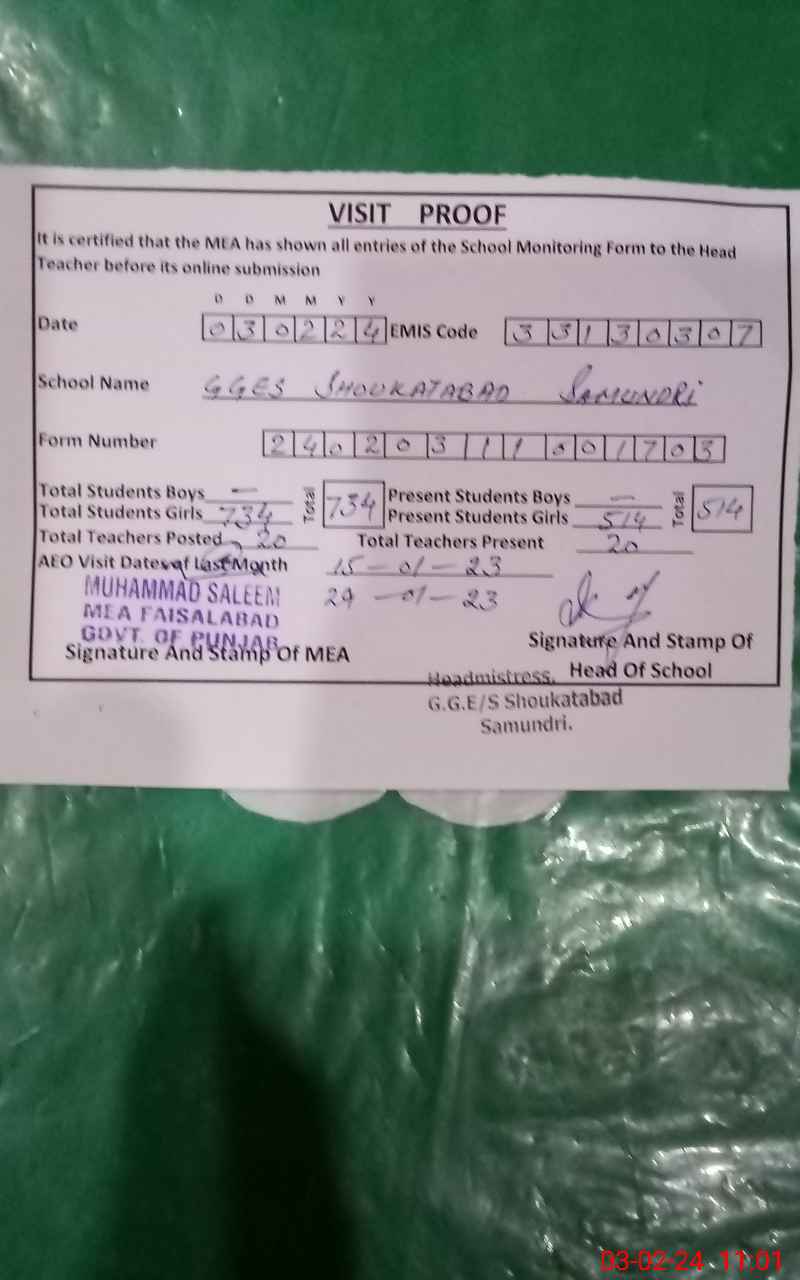 VISIT PROOF
It is certified that the MEA has shown all entries of the School Monitoring Form to the Head
Teacher before its online submission
D D M M Y Y
Date 030224 EMIS Code 33130307
School Name GGES SHOUKATABAD SAMUNDRI
Form Number 24020311001703
Total Students Boys - Total 734 Present Students Boys - Total 514
Total Students Girls 734 Present Students Girls 514
Total Teachers Posted 20 Total Teachers Present 20
AEO Visit Dates of Last Month 15-01-23
MUHAMMAD SALEEM 29-01-23
MEA FAISALABAD
GOVT. OF PUNJAB
Signature And Stamp Of MEA
Signature And Stamp Of
Head Of School
Headmistress,
G.G.E/S Shoukatabad
Samundri.
03-02-24 11:01